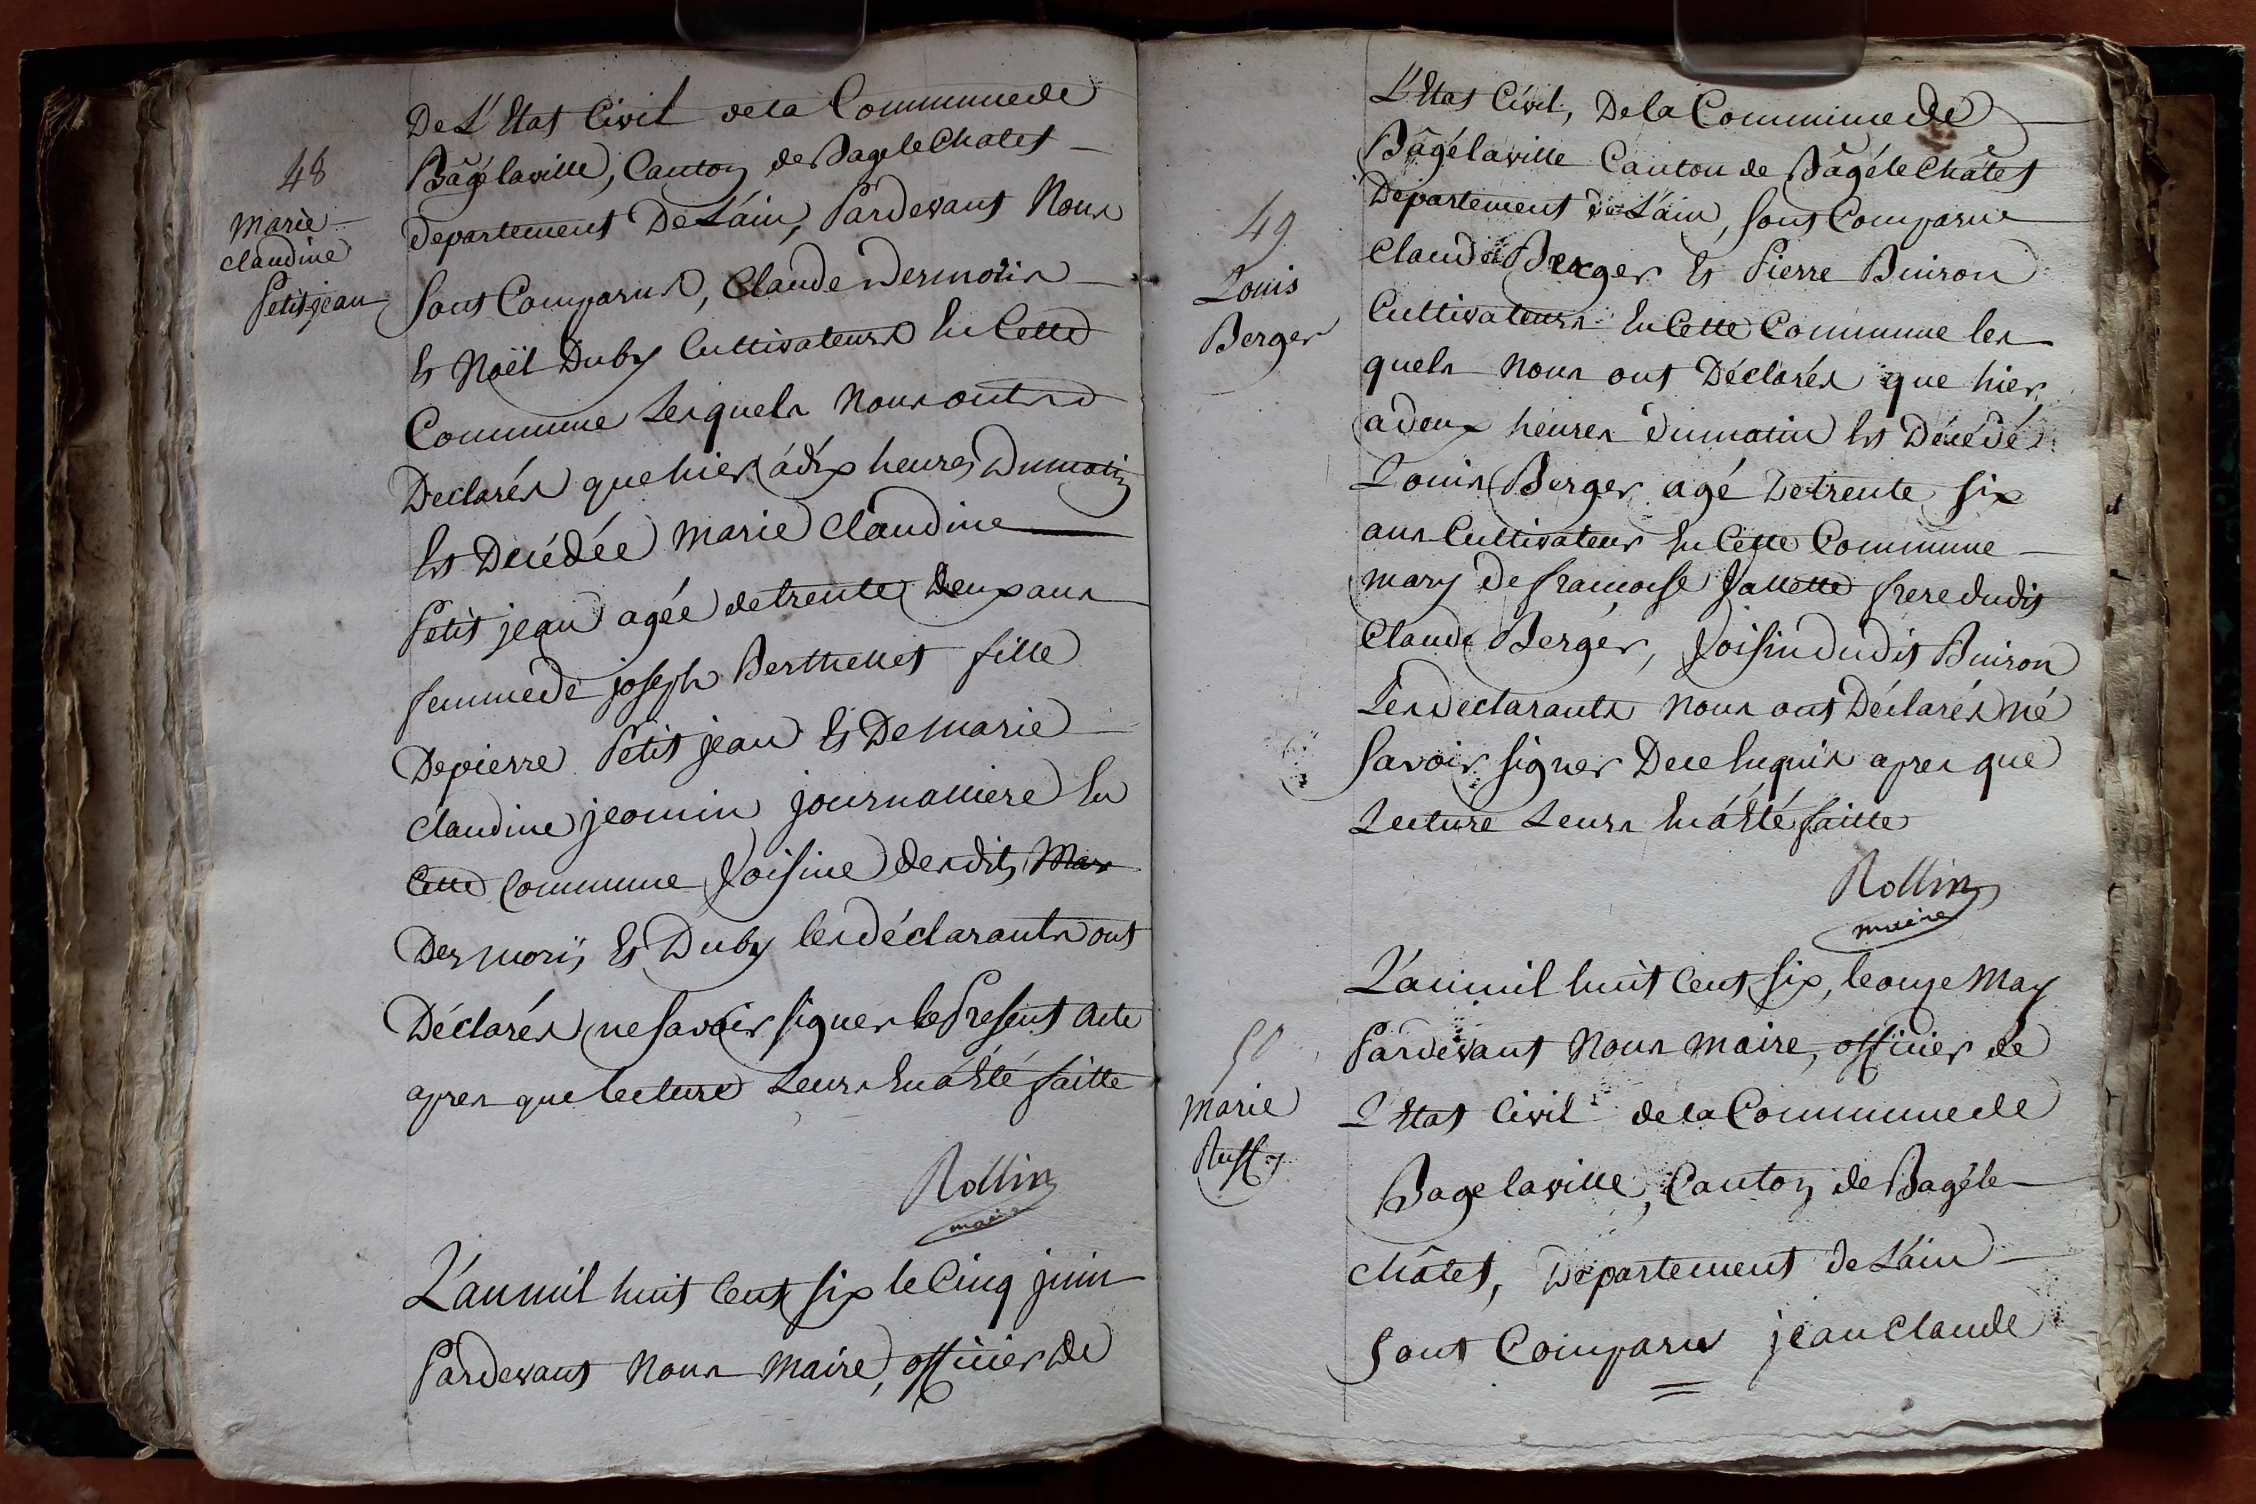 De L'Etat Civil de la Commune de
Bâgélaville, Canton de Bagelechatet
48
departement De L'ain, Pardevant Nous
Marie
claudine
Petitjean
sont Comparus, Claude Desmoris
Et Noël Duby Cultivateurs En Cette
Commune Lesquels Nous ont
Déclarés que hier à dix heures Du matin
Est Décédée Marie Claudine
Petit jean agée de trente Deux ans
femme de joseph Berthellet fille
De pierre Petit jean Et De Marie
claudine jeomin journaliere En
Cette Commune Voisine desdits
Desmoris Et Duby les déclarants ont
Déclarés ne savoir signer le Present acte
apres que lecture Leurs En á Eté faitte
Rollin
maire
L'an mil huit Cent six le Cinq juin
Pardevant Nous Maire, officier De
L'Etat Civil, De la Commune de
Bâgélaville Canton de Bâgé le Châtet
Departement de L'ain, sont Comparus
49
Louis
Berger
Claude Berger Et Pierre Buiron
Cultivateurs En Cette Commune les
quels Nous ont Déclarés que hier
a deux heures du matin Est Décédé
Louis Berger agé De trente six
ans Cultivateur En Cette Commune
mary de francoise Vallette frere dudit
Claude Berger, Voisin dudit Buiron
Les declarants Nous ont Déclarés né
savoir signer De ce Enquis apres que
Lecture Leurs En á Eté faitte
Rollin
maire
L'an mil huit Cent six, le onze May
50
Pardevant Nous Maire, officier de
Marie
L'Etat Civil de la Commune de
Bagelaville, Canton de Bagé le
châtet, Departement de L'ain
sont Comparus jean claude